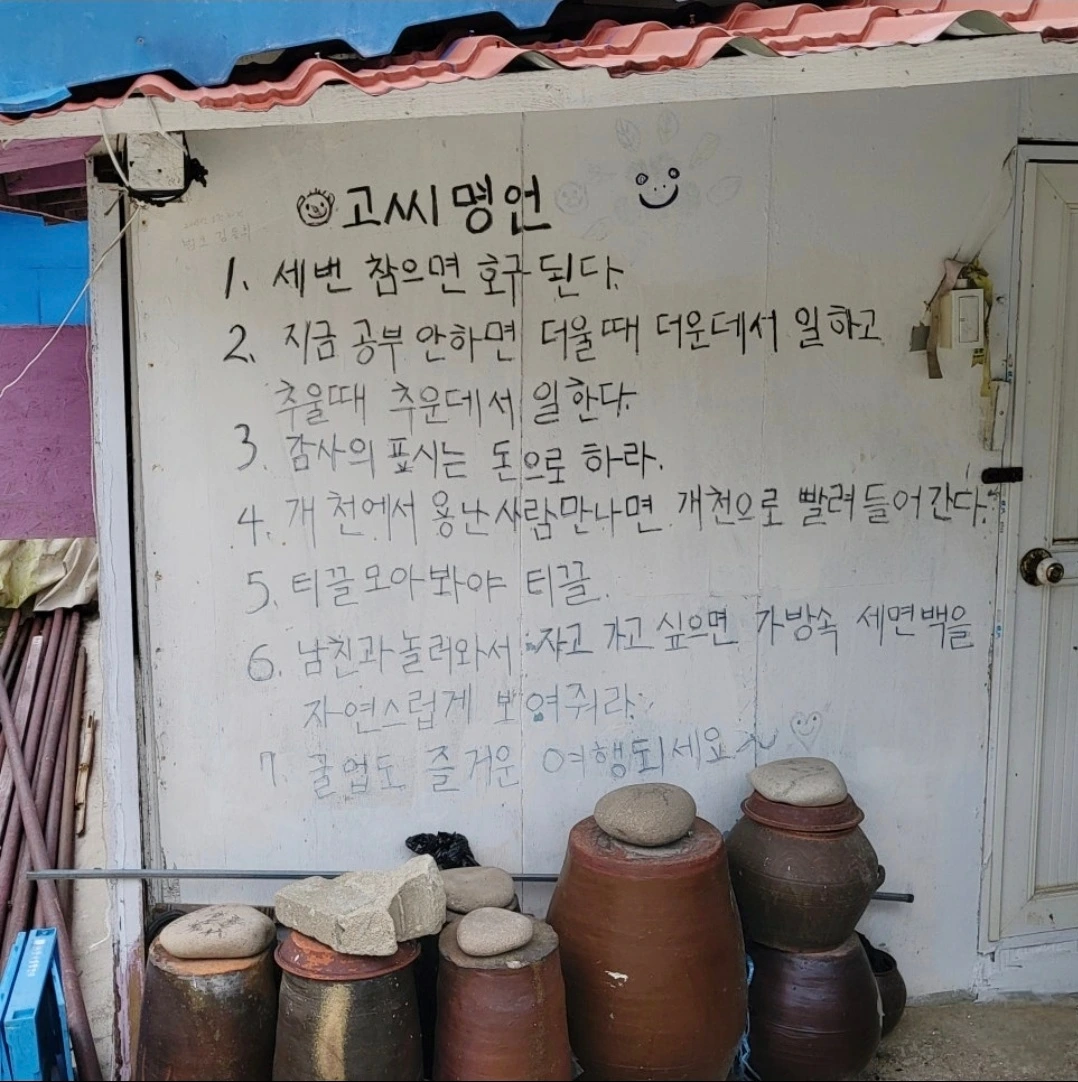 고씨명언
1. 세번 참으면 호구된다.
2. 지금 공부 안하면 더울때 더운데서 일하고
추울때 추운데서 일한다.
3. 감사의 표시는 돈으로 하라.
4. 개천에서 용난사람만나면 개천으로 빨려들어간다.
5. 티끌모아봐야 티끌.
6. 남친과놀러와서 자고 가고싶으면 가방속 세면백을
자연스럽게 보여줘라.
7. 굴업도 즐거운 여행되세요~